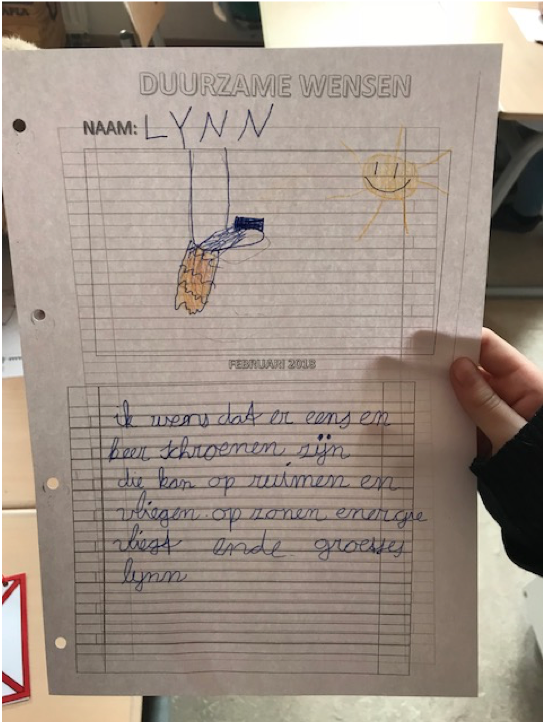 DUURZAME WENSEN
NAAM: LYNN
FEBRUARI 2018
ik wens dat er eens en
keer schroenen zijn
die kan op ruimen en
vliegen op zonen energie
vliest ende groesses
lynn